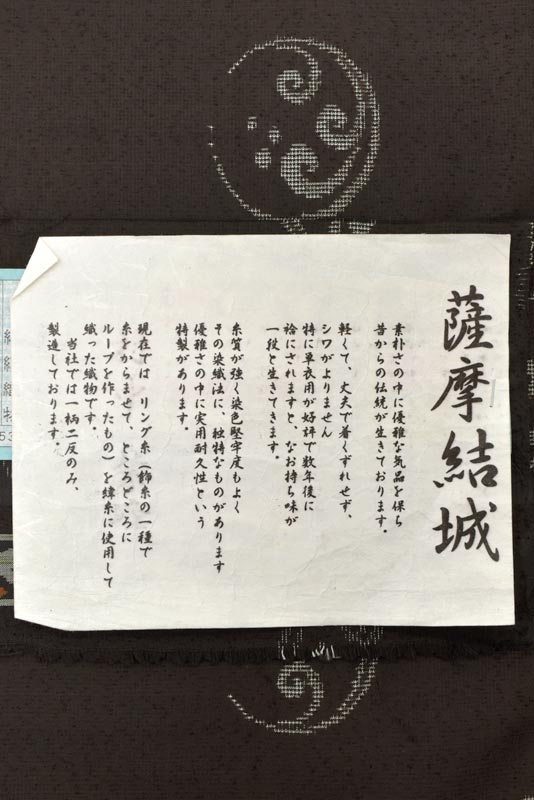 薩摩結城
素朴さの中に優雅な気品を保ち
昔からの伝統が生きております。
軽くて、丈夫で着くずれせず、
シワがよりません
特に単衣用が好評で数年後に
袷にされますと、なお持ち味が
一段と生きてきます。
糸質が強く染色堅牢度もよく
その染織法に、独特なものがあります
優雅さの中に実用耐久性という
特製があります。
現在では、リング糸(飾糸の一種で
糸をからませて、ところどころに
ループを作ったもの)を緯糸に使用して
織った織物です。
当社では一柄二反のみ、
製造しております。